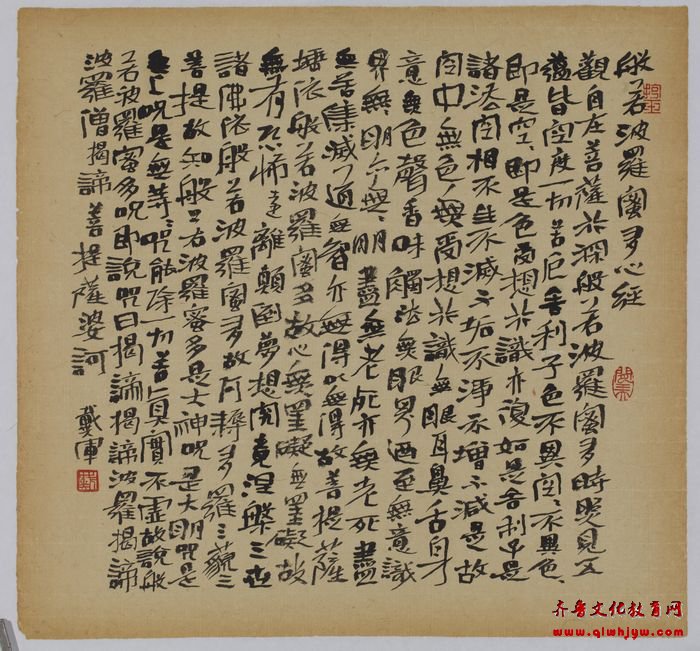 般若波羅蜜多心經
觀自在菩薩行深般若波羅蜜多時照見五
蘊皆空度一切苦厄舍利子色不異空〻不異色〻
即是空〻即是色受想行識亦復如是舍利子是
諸法空相不生不滅不垢不淨不增不減是故
空中無色無受想行識無眼耳鼻舌身
意無色聲香味觸法無眼界迺至無意識
界無〻明亦無〻明盡無老死亦無老死盡
無苦集滅道無智亦無得以無得故菩提薩
埵依般若波羅蜜多故心無罣礙無罣礙故
無有恐怖遠離顛倒夢想究竟涅槃三世
諸佛依般若波羅蜜多故阿耨多羅三藐三
菩提故知般若波羅蜜多是大神咒是大明咒是
無上咒是無等〻咒能除一切苦真實不虛故說般
若波羅蜜多咒即說咒曰揭諦揭諦波羅揭諦
波羅僧揭諦菩提薩婆訶 戴軍
齐鲁文化教育网
www.qlwhjyw.com